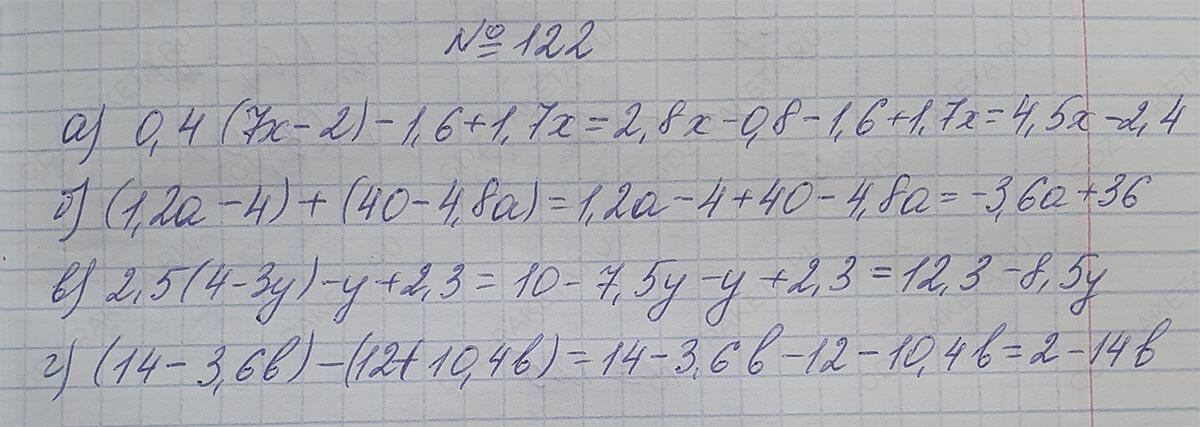 № 122
а) 0,4 (7x - 2) - 1,6 + 1,7x = 2,8x - 0,8 - 1,6 + 1,7x = 4,5x - 2,4
б) (1,2a - 4) + (40 - 4,8a) = 1,2a - 4 + 40 - 4,8a = -3,6a + 36
в) 2,5(4 - 3y) - y + 2,3 = 10 - 7,5y - y + 2,3 = 12,3 - 8,5y
г) (14 - 3,6в) - (12 + 10,4в) = 14 - 3,6в - 12 - 10,4в = 2 - 14в